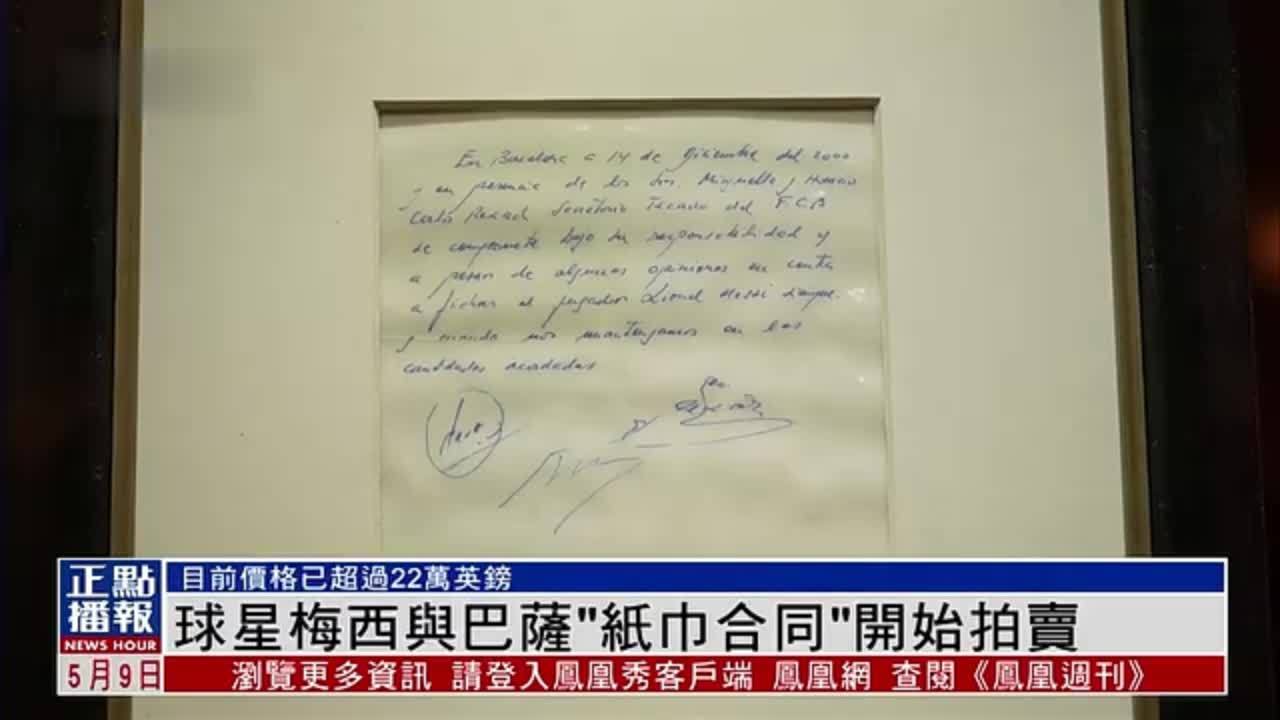 En Barcelona a 14 de Diciembre del 2000
y en presencia de los Srs. Minguella y Horacio
Carlos Rexach Secretario Técnico del F.C.B
se compromete bajo su responsabilidad y
a pesar de algunas opiniones en contra
a fichar al jugador Lionel Messi siempre
y cuando nos mantengamos en las
cantidades acordadas
正點播報
NEWS HOUR
目前價格已超過22萬英鎊
球星梅西與巴薩"紙巾合同"開始拍賣
5月9日
瀏覽更多資訊 請登入鳳凰秀客戶端 鳳凰網 查閱《鳳凰週刊》